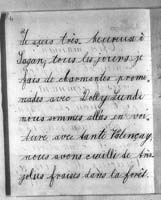 Je suis très heureux à
Sagan, tous les jours je
fais de charmantes prome
nades avec Dolly Lundi
nous sommes allés en voi
ture avec tante
nous avons cueilli de très
jolies fraises dans la forêt.